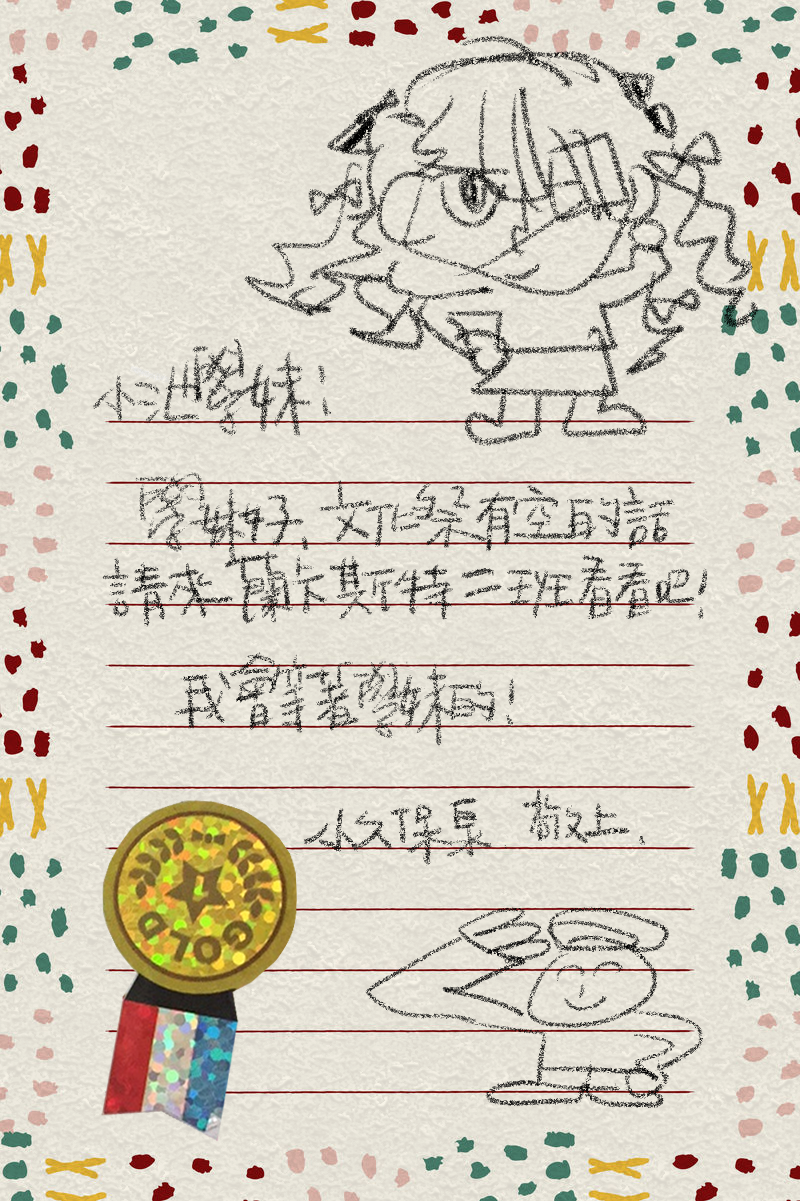 小池學妹!
學妹好、文化祭有空的話
請來蘭卡斯特二班看看吧!
我會等著學妹的!
小久保梟 敬上.
GOLD